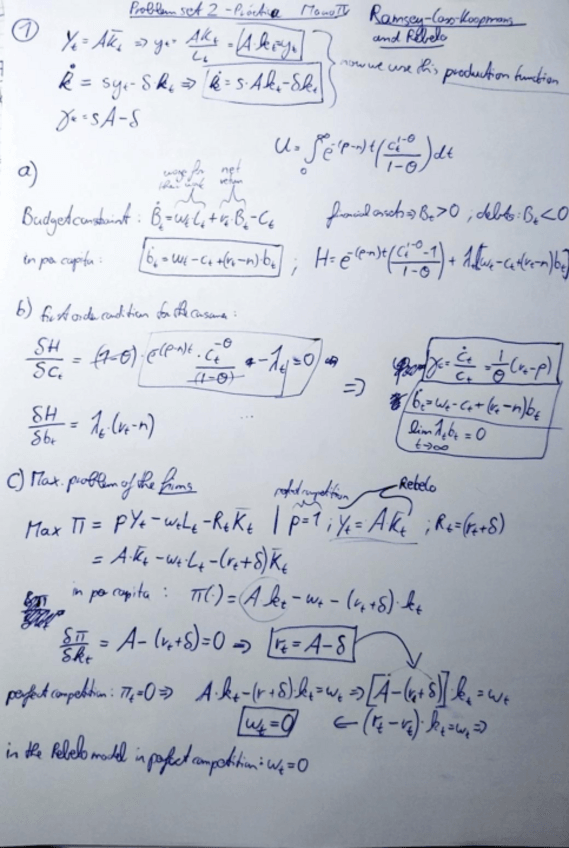 Problem set 2 - Práctica Macro IV
Ramsey-Cass-Koopmans and Rebelo
① Yₜ = AK̄ₜ ⇒ yₜ = AKₜ/Lₜ = A·kₜ = yₜ
k̇ = syₜ - δkₜ ⇒ k̇ = s·Akₜ - δkₜ
now we use this production function
γₖ = sA - δ
U = ∫₀^∞ e^-(ρ-n)t (cₜ^1-θ / 1-θ) dt
a)
wage for net return
Budget constraint: Ḃₜ = wₜLₜ + rₜBₜ - Cₜ financial assets ⇒ Bₜ > 0 ; debts: Bₜ < 0
in per capita: ḃₜ = wₜ - cₜ + (rₜ - n)·bₜ ; H = e^-(ρ-n)t (cₜ^1-θ - 1 / 1-θ) + λ[wₜ - cₜ + (rₜ - n)bₜ]
b) first order condition for the consumer:
δH/δcₜ = (1-θ)·e^-(ρ-n)t · cₜ^-θ / (1-θ) + -λₜ = 0 ⇒ γc = ċₜ/cₜ = 1/θ (rₜ - ρ)
ḃₜ = wₜ - cₜ + (rₜ - n)bₜ
δH/δbₜ = λₜ·(rₜ - n) ...
lim t→∞ λₜbₜ = 0
c) Max. problem of the firms
perfect competition Rebelo
Max Π = PYₜ - wₜLₜ - RₜK̄ₜ | p=1 ; Yₜ = AK̄ₜ ; Rₜ = (rₜ + δ)
= A·K̄ₜ - wₜ·Lₜ - (rₜ + δ)K̄ₜ
in per capita: π(·) = A·kₜ - wₜ - (rₜ + δ)·kₜ
δπ/δkₜ = A - (rₜ + δ) = 0 ⇒ rₜ = A - δ
perfect competition: πₜ = 0 ⇒ A·kₜ - (r + δ)·kₜ = wₜ ⇒ [A - (rₜ + δ)]·kₜ = wₜ
wₜ = 0 ← (rₜ - rₜ)·kₜ = wₜ ⇒
in the Rebelo model in perfect competition: wₜ = 0